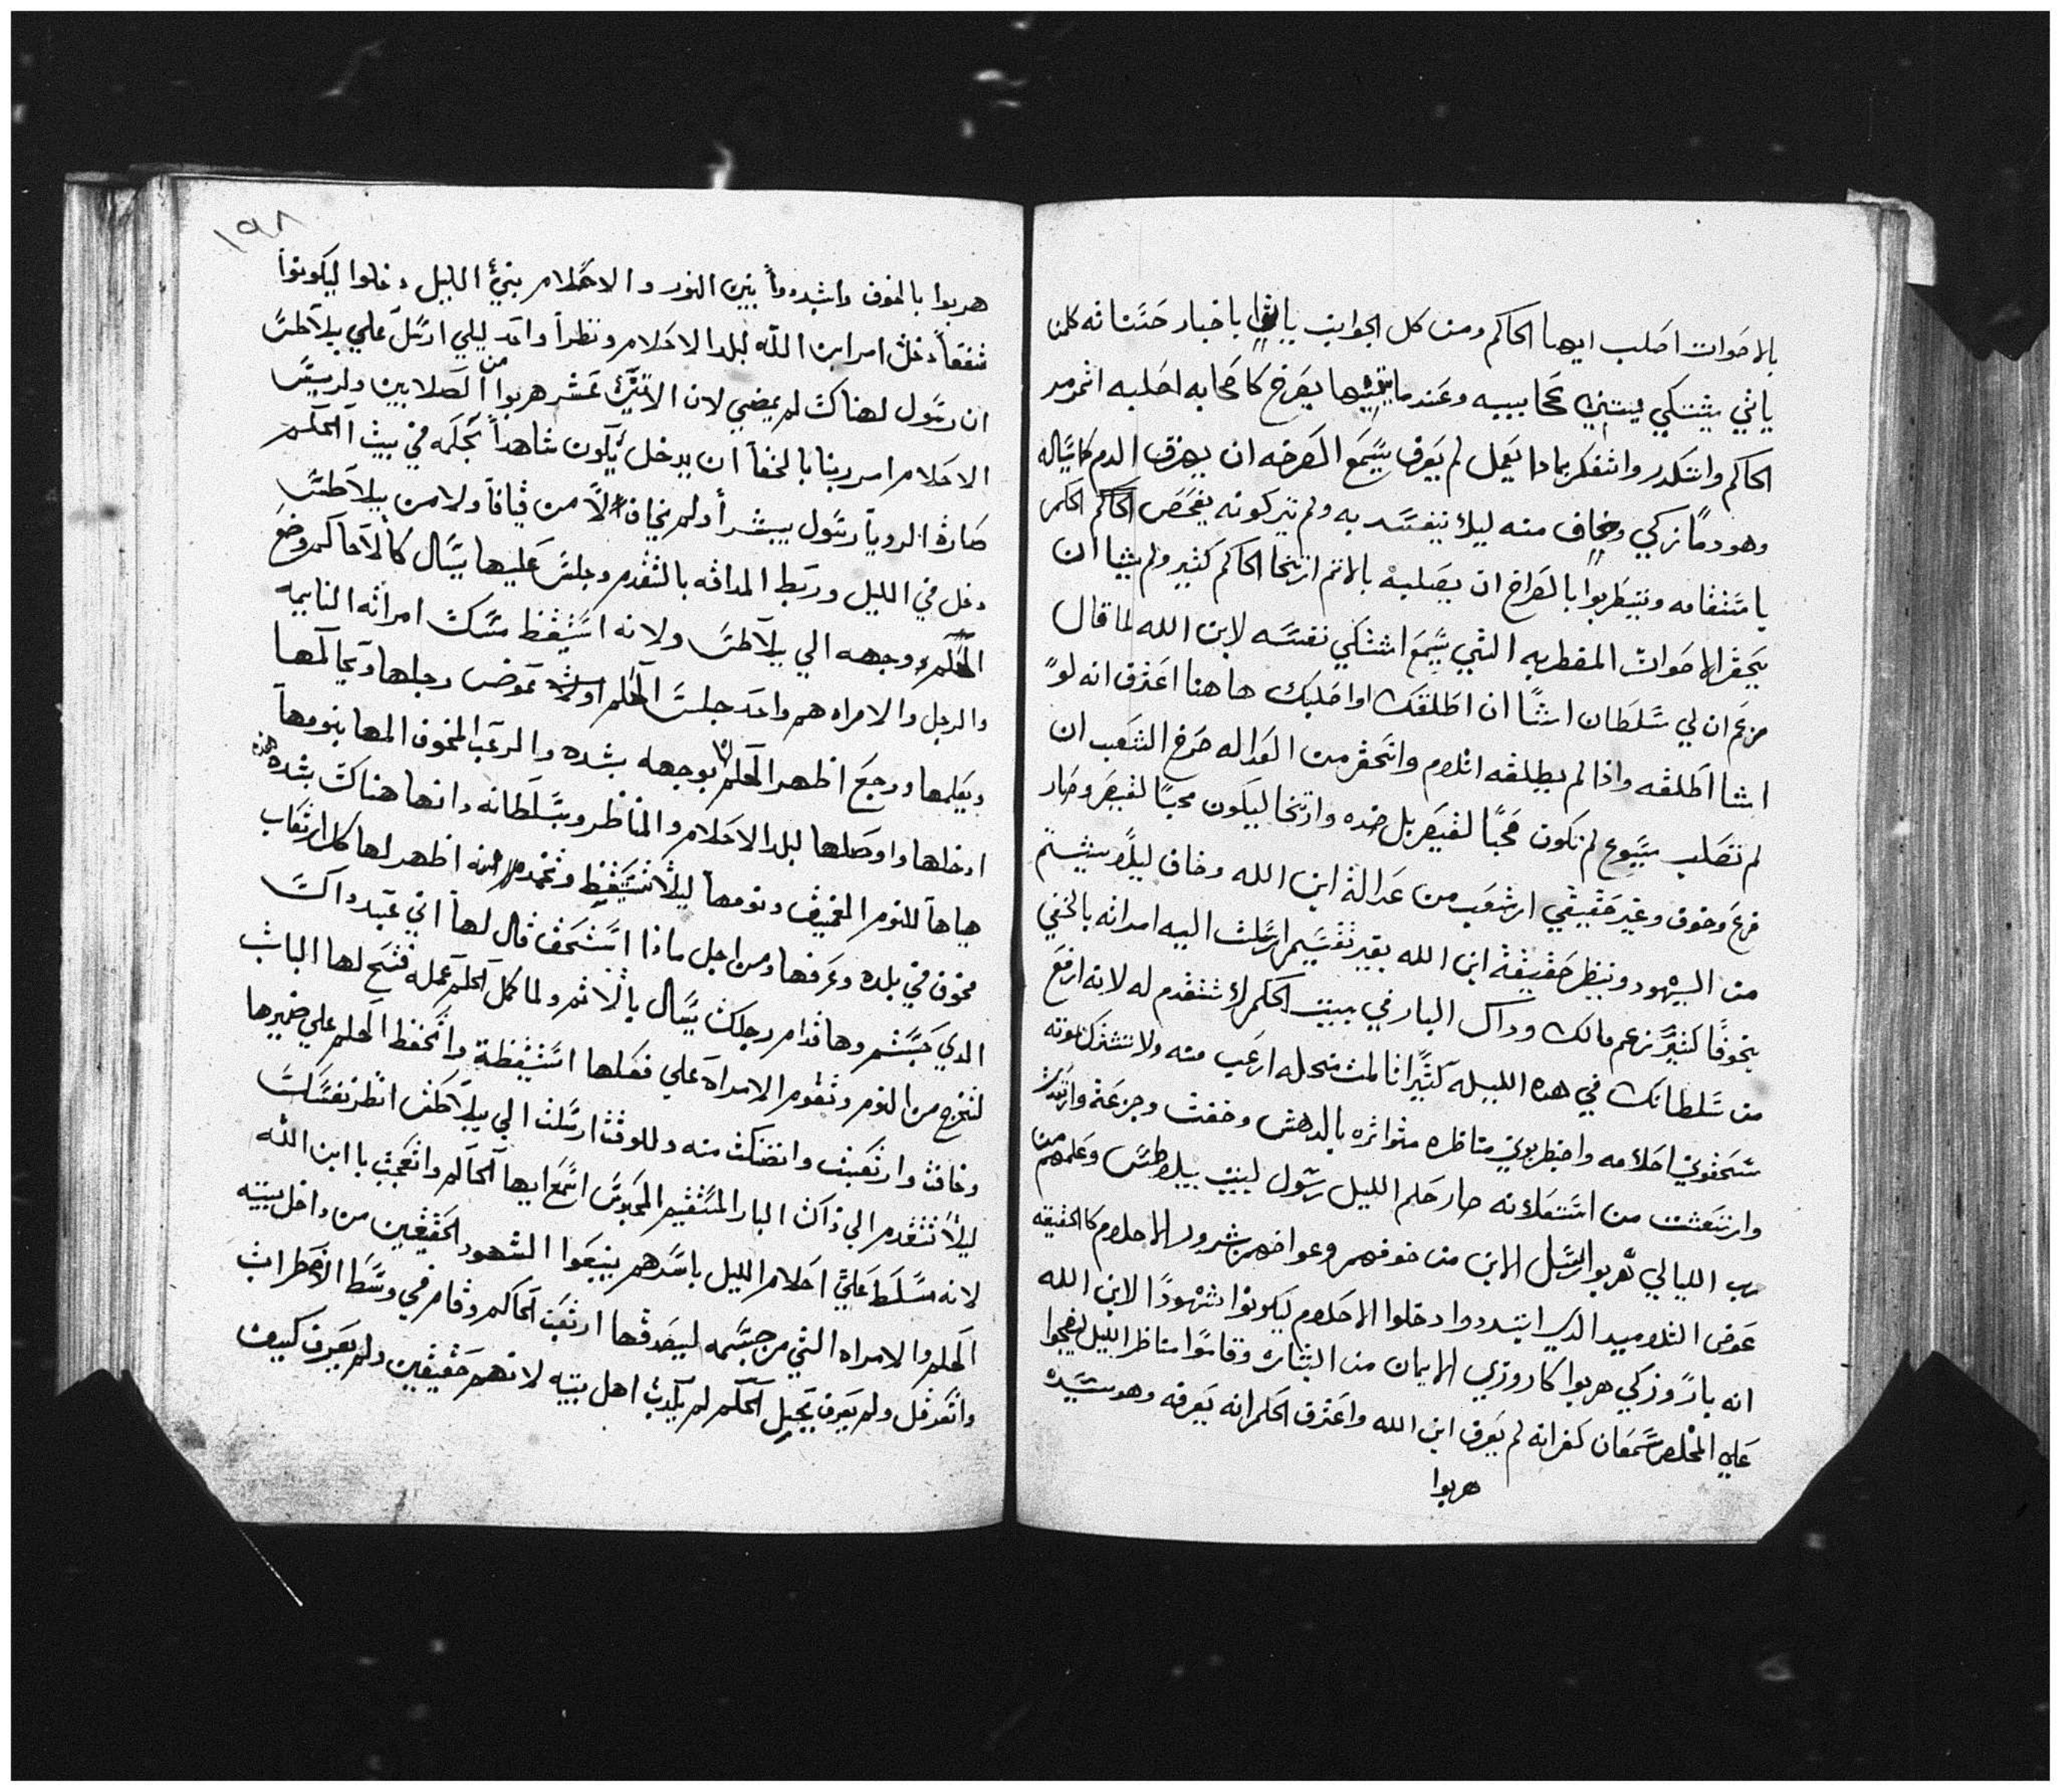 بالاصوات اصلب ايها الحاكم ومن كل الجوانب ياتوا باخبار حسناته كلمن
ياتي يشتكي يبتدي عجايبه وعندما يتميها يصرخ كاصحابه اصلبه اثمرمر
الحاكم واتكدر واتفكر بماذا يعمل لم يعرف يسمع الصرخه ان يهرق الدم كاتياله
وهو دمًا زكي وخاف منه ليلا يتفسد به ولم تيركونه يفحص الحاكم الحكم
يامتقامه ويتيطربوا بالصراخ ان يصلبه بالاتم ارتخا الحاكم كتير ولم يشا ان
يحقر الاصوات المقطربه التي يسمع اشتكي نفسه لابن الله لما قال
مزعم ان لي سلطان اشًا ان اطلقك او اصلبك هاهنا اعترف انه لوً
اشا اطلقه واذا لم يطلقه اتلام واتحقر من العداله صرخ الشعب ان
لم تصلب يسوع لم تكون محبًا لقيصر بل ضده وارتخا ليكون محبًا لقيصر وصار
فزع وخوف وغير حقيقي ارتعب من عدالة ابن الله وخاف ليلا يتشتم
من اليهود وينظر حقيقة ابن الله بغير تقسيم ارسلت اليه امراته بالخفي
بخوفًا كتيرً زعم مالك وداك البار في بيت الحكم لا تتقدم له لانه ارفع
من سلطانك في هده الليله كتيرًا تالمت من حله ارعب منه ولا تشترك بموته
سحفوني احلامه واضطربوني مناظره متواتره بالدهش وخفت وجزعة وارتديت
وارتعشت من استعلانه صار حلم الليل رسول لبيت بيلاطس وعلمهم من
رب الليالي هربوا الرسل الابن من خوفهم وعواضهم شرود الاحلام كالحقيقه
عوض التلاميد الدي اتبددوا دخلوا الاحلام ليكونوا شهودًا لابن الله
انه بارً وزكي هربوا كاروزي الايمان من البشاره وقاموا مناظر الليل ليضجوا
علي المخلص سمعان كفر انه لم يعرف ابن الله واعترف الحلم انه يعرفه وهو سيده
هربوا
١٩٨
هربوا بالخوف واتبددوا بنين النور والاحلام بني الليل دخلوا ليكونوا
شفقاً دخل امر ابن الله لبلد الاحلام ونظرا واحد ليلي ارسل علي بيلاطس
ان رسول لهناك لم يمضي لان الاتني عشر هربوا من الصلابين ولربيس
الاحلام امر ربنا بالخفا ان يدخل يكون شاهداً بحكمه في بيت الحكم
صارة الرويا رسول يبشر أولم يخاف لا من قيافا ولا من بيلاطس
دخل في الليل وربط المدافه بالتقدم وجلس عليها يسال كالاحاكم وضع
الحكم وجهه الي بيلاطس ولانه استيقظ مسك امراته النايمه
والرجل والامراه هم واحد جلس الحلم عوض رجلها وتحاكمها
ويعلمها ورجع اظهر الحلم لها بوجهه بشده والرعب المخوف المها بنومها
ادخلها واوصلها لبلد الاحلام والمناظر وبسلطانه دانها هناك بشده هزه
هياها للنوم المخيف ونومها ليلا تستيقظ وتخمد اظهر لها كل ارتعاب
مخوف في بلده وعرفها ومن اجل ماذا استخف قال لها اني عبد داك
الدي حبستم وها قدام رجلك يسال بالاثم ولما كمل الحلم عمله فتح لها الباب
لتخرج من النوم وتقوم الامراه علي فكلها استيقظة واتحفظ الحلم علي ضميرها
وخافت وارتعبت وانضنكت منه وللوقت ارسلت الي بيلاطس انظر نفسك
ليلا تتقدم الي داك البار المستقيم المحبوس اسمع ايها الحاكم واتعجب يا ابن الله
لانه مسلط علي احلام الليل باسرهم ينبعوا الشهود الحقيقين من داخل بيته
الحلم والامراه التي من جسمه ليصدقها ارتعب الحاكم وقام في وسط الاضطراب
واتعرقل ولم يعرف يحيل الحكم لم يكدب اهل بيته لانهم حقيقين ولم يعرف كيف